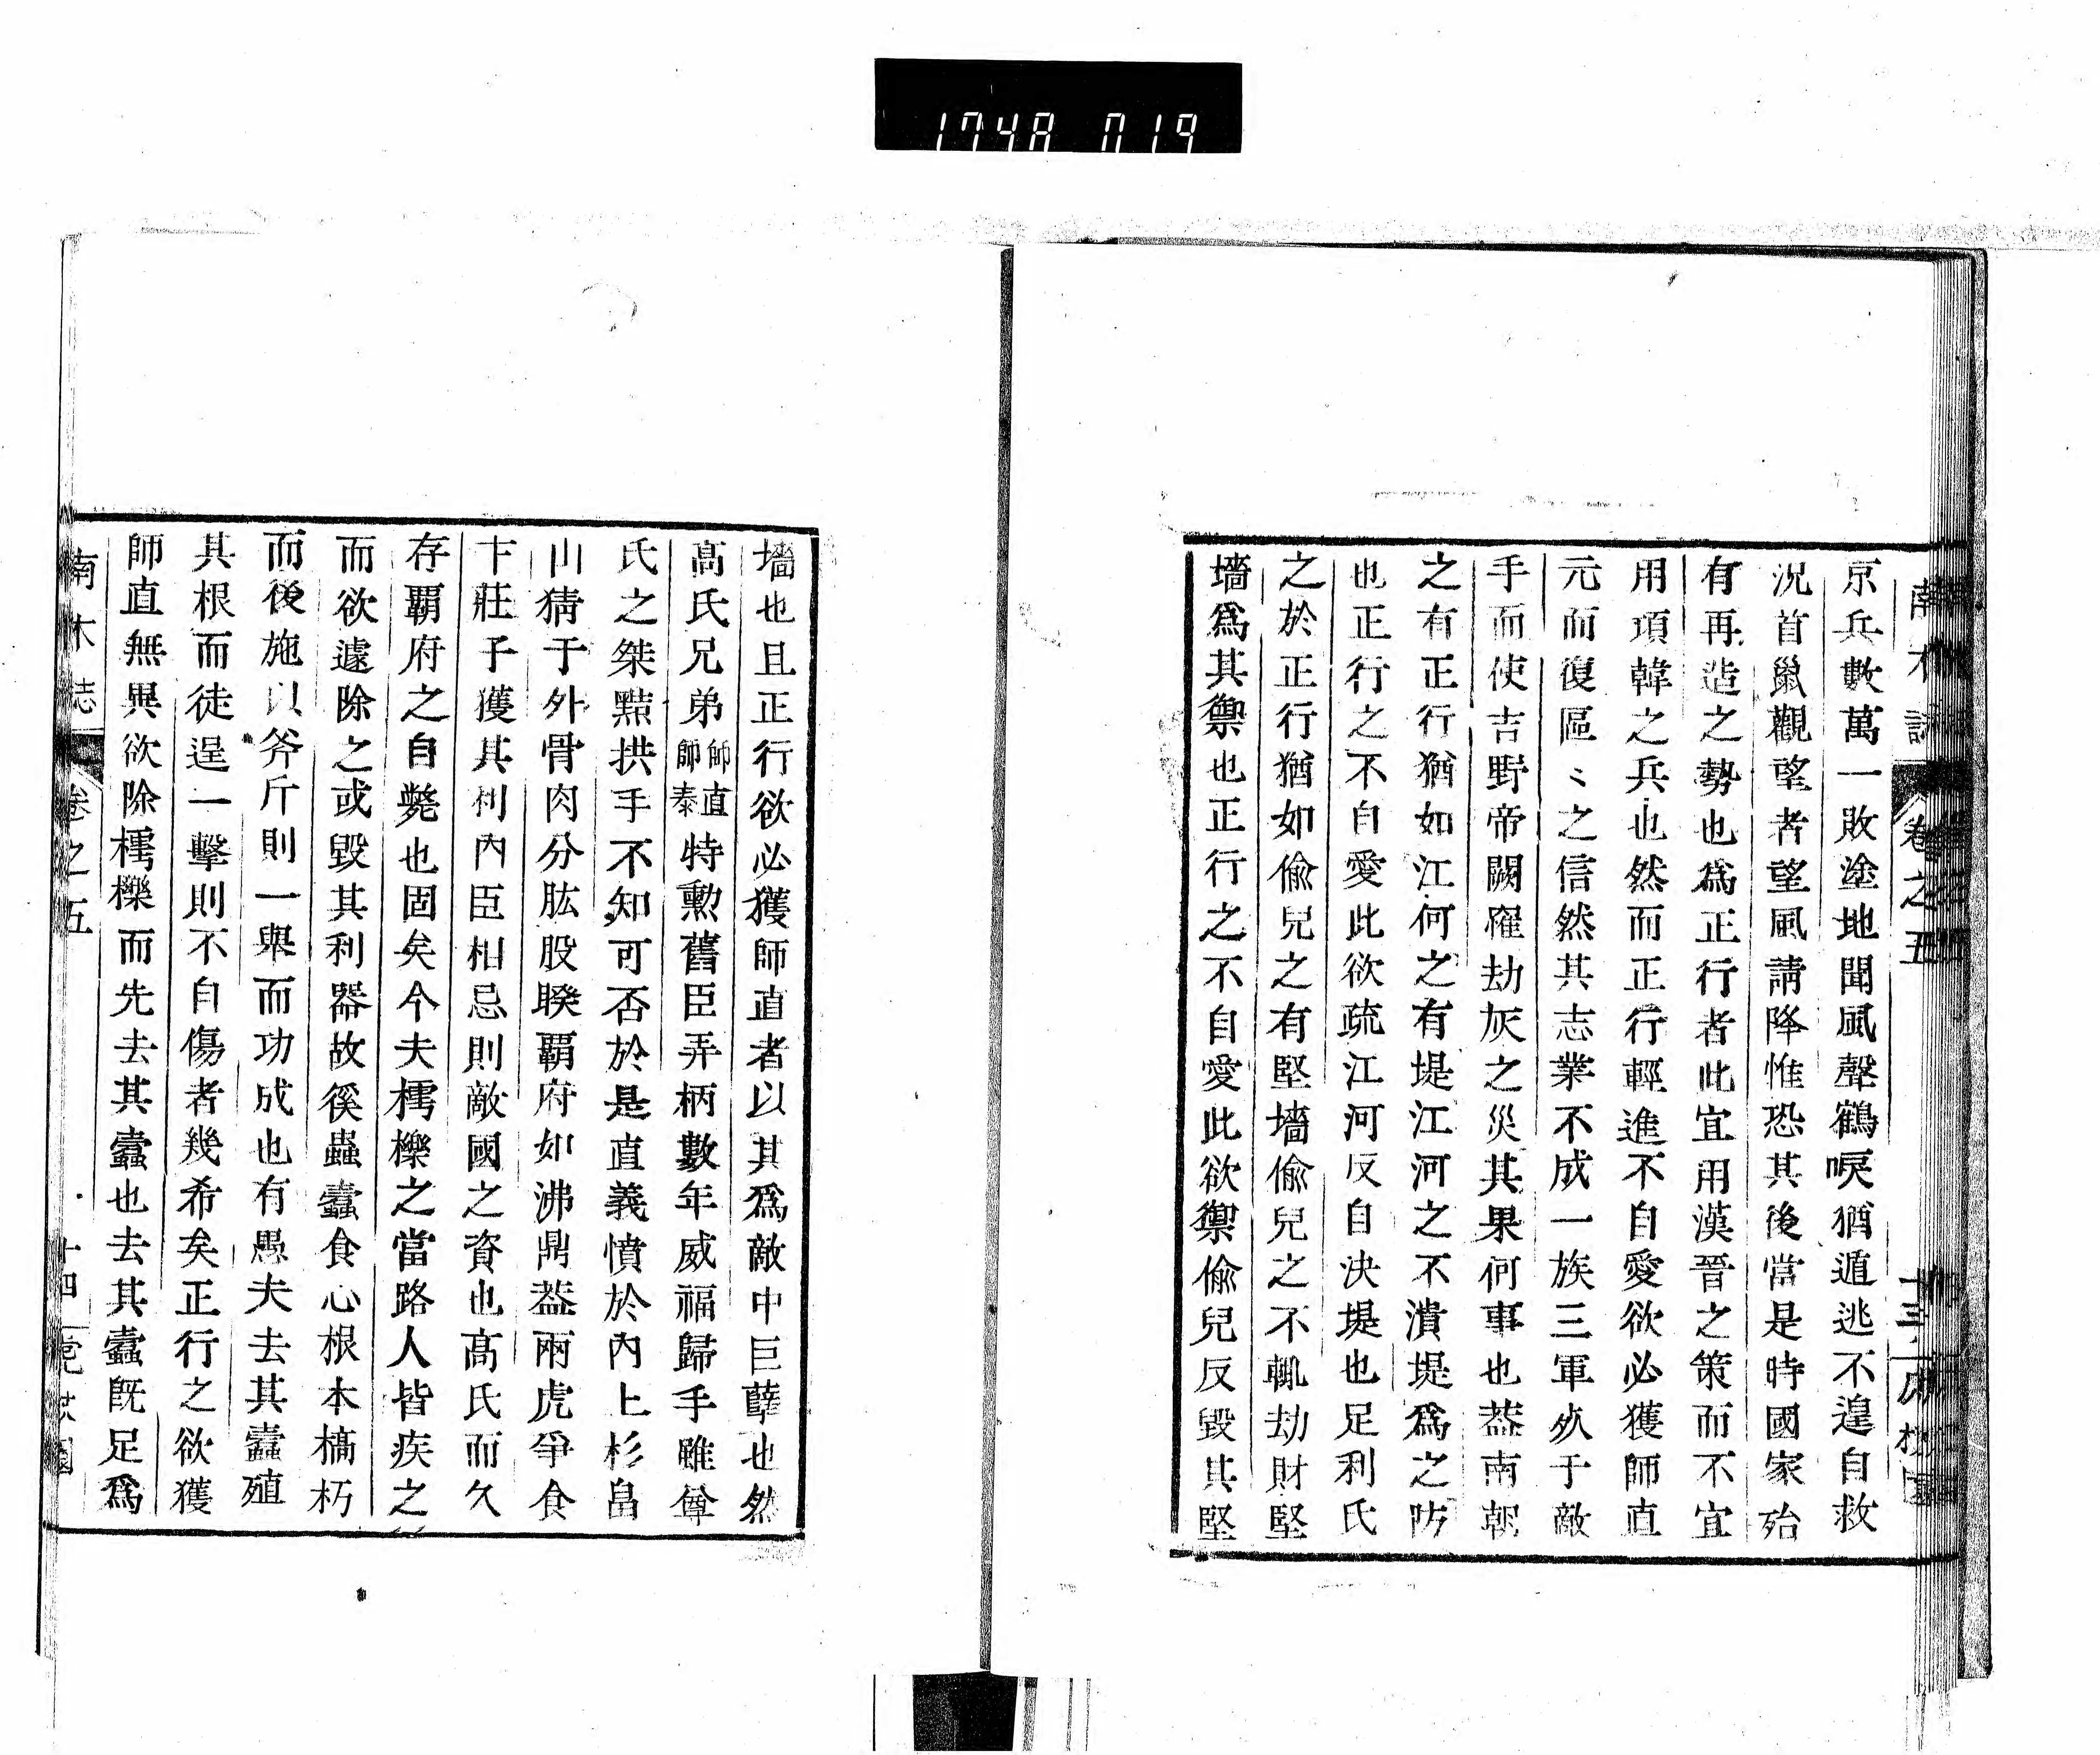 1748 019
南木誌 卷之五 十三
京兵數萬一敗塗地聞風聲鶴唳猶遁逃不遑自救
況首鼠觀望者望風請降惟恐其後當是時國家殆
有再造之勢也爲正行者此宜用漢晉之策而不宜
用項韓之兵也然而正行輕進不自愛欲必獲師直
元而復區〻之信然其志業不成一族三軍歿于敵
手而使吉野帝闕罹劫灰之災其果何事也葢南朝
之有正行猶如江河之有堤江河之不潰堤爲之防
也正行之不自愛此欲疏江河反自决堤也足利氏
之於正行猶如偸兒之有堅墻偸兒之不輒劫財堅
墻爲其禦也正行之不自愛此欲禦偸兒反毀其堅
墻也且正行欲必獲師直者以其爲敵中巨孽也然
髙氏兄弟師直師泰特勲舊臣弄柄數年威福歸手雖尊
氏之桀黠拱手不知可否於是直義憤於內上杉畠
山猜于外骨肉分肱股睽覇府如沸鼎葢兩虎爭食
卞莊子獲其利內臣相忌則敵國之資也髙氏而久
存覇府之自斃也固矣今夫樗櫟之當路人皆疾之
而欲遽除之或毀其利器故徯蟲蠹食心根本槁朽
而後施以斧斤則一舉而功成也有愚夫去其蠹殖
其根而徒逞一擊則不自傷者幾希矣正行之欲獲
師直無異欲除樗櫟而先去其蠹也去其蠹旣足爲
南木誌 卷之五 十四